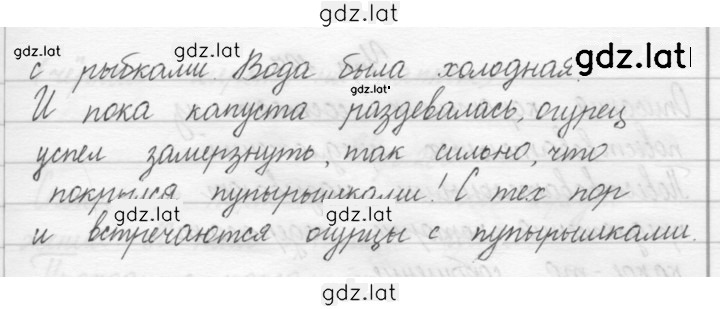 gdz.lat
gdz.lat gdz.lat gdz.lat
с рыбками. Вода была холодная.
gdz.lat
И пока капуста раздевалась, огурец
успел замерзнуть, так сильно, что
покрылся пупырышками! С тех пор
gdz.lat gdz.lat gdz.lat
и встречаются огурцы с пупырышками.
gdz.lat